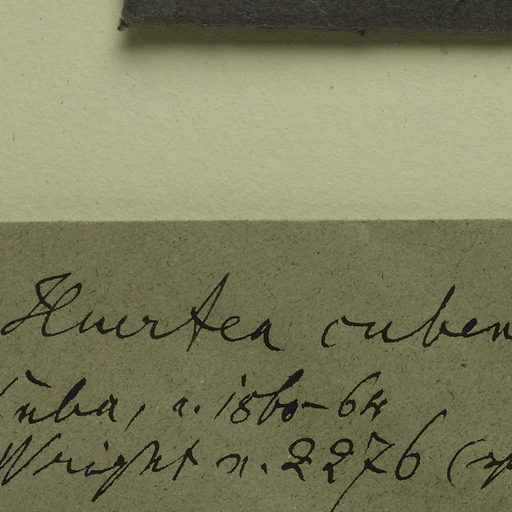 Huertea cuben
Cuba, a. 1860-64
Wright n. 2276 (